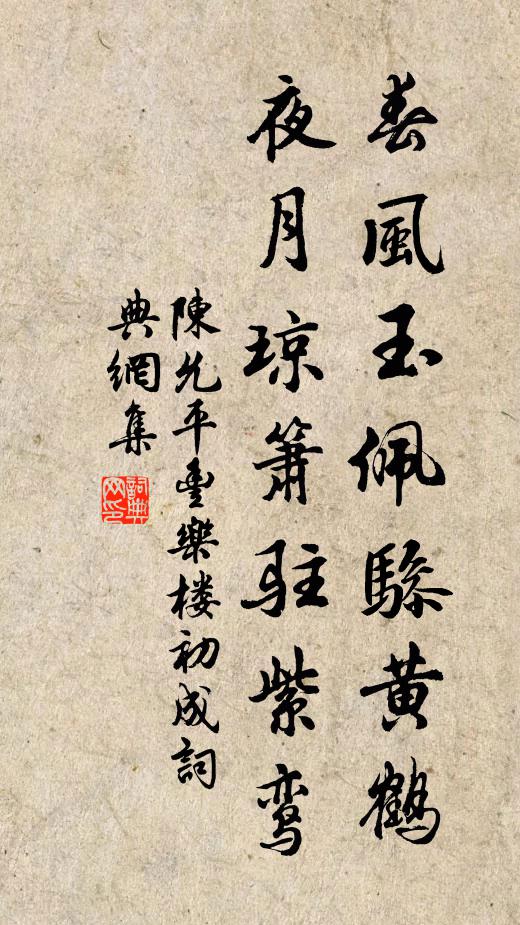 春風玉佩驂黄鶴
夜月琼簫駐紫鸾
陳允平豐樂楼初成詞
典網集
詞典
网印